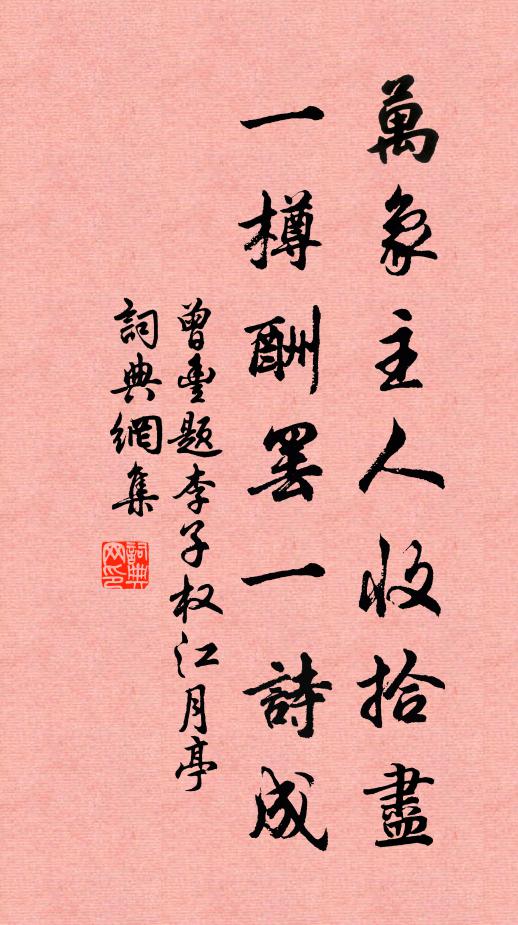 萬象主人收拾盡
一樽酬罢一詩成
曾豐題李子权江月亭
詞典網集
詞典网印